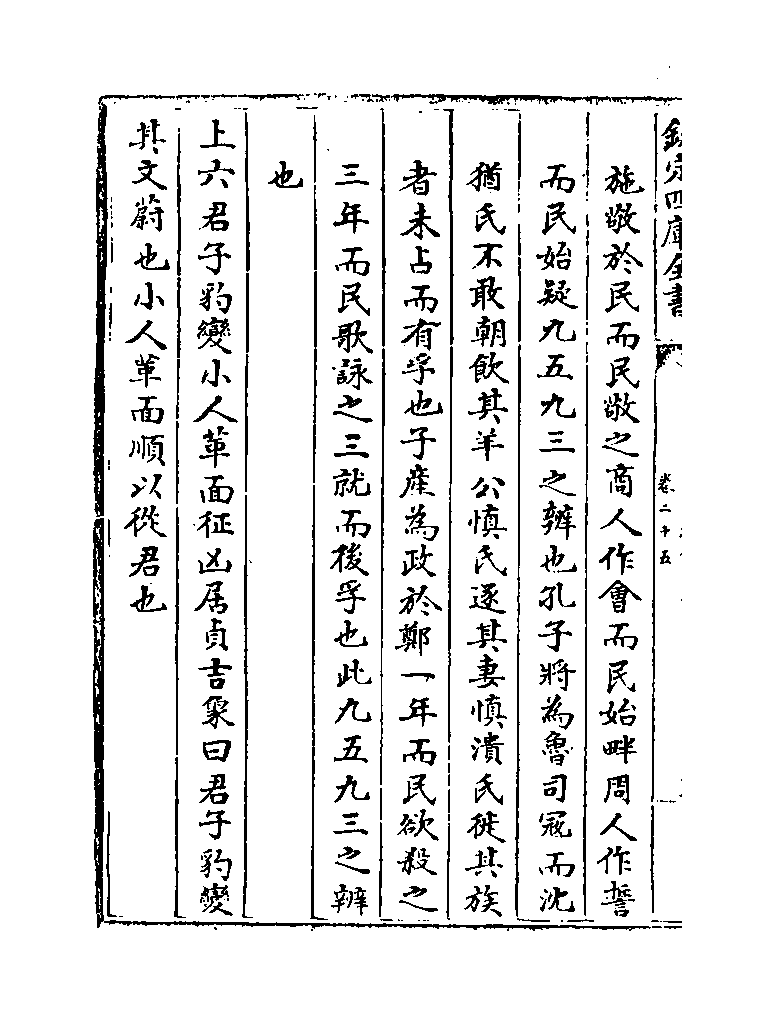 欽定四庫全書
卷二十五
施敬於民而民敬之商人作會而民始畔周人作誓
而民始疑九五九三之辨也孔子將為魯司冦而沈
猶氏不敢朝飲其羊公慎氏逐其妻慎潰氏徙其族
者未占而有孚也子産為政於鄭一年而民欲殺之
三年而民歌詠之三就而後孚也此九五九三之辨
也
上六君子豹變小人革面征凶居貞吉象曰君子豹變
其文蔚也小人革面順以從君也